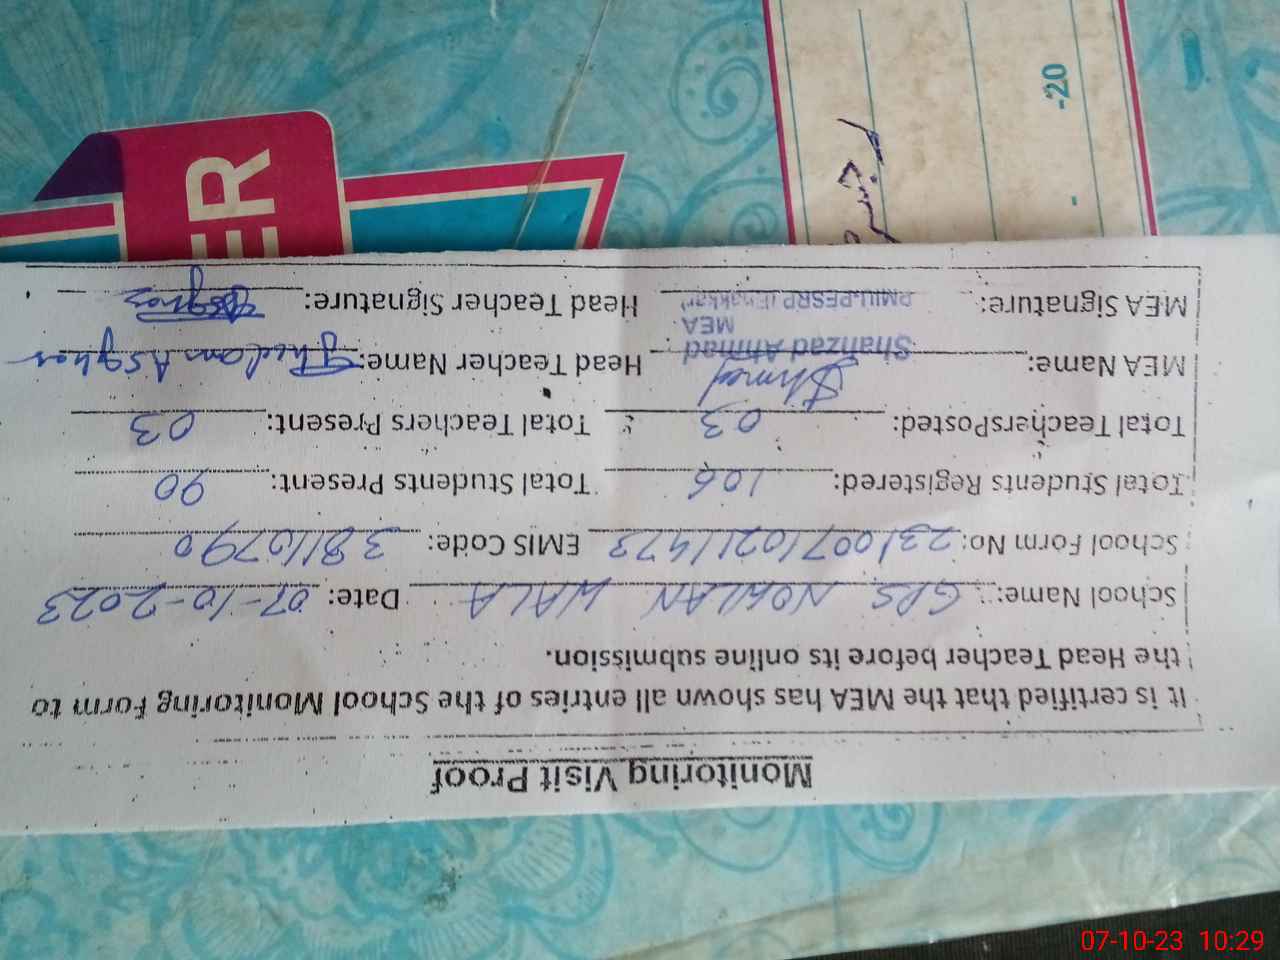 Monitoring Visit Proof
It is certified that the MEA has shown all entries of the School Monitoring Form to
the Head Teacher before its online submission.
School Name: GPS NOHLAN WALA Date: 07-10-2023
School Form No: 2310071021473 EMIS Code: 38110790
Total Students Registered: 106 Total Students Present: 90
Total TeachersPosted: 03 Total Teachers Present: 03
MEA Name: Shahzad Ahmad Head Teacher Name: Asghar
MEA
MEA Signature: PMIU-PESRP (Bhakkar) Head Teacher Signature:
ER
-20
-
07-10-23 10:29